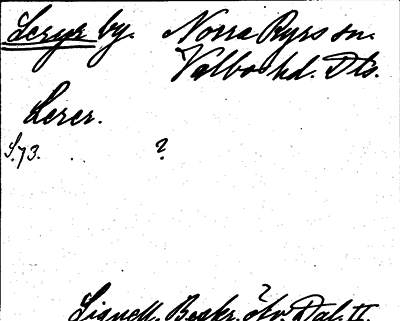 Lerye by. Norra Ryrs sn.
Valbo hd. Dls.
Lerer.
S. 73. ?
Lignell, Beskr. öfv. Dal. II.